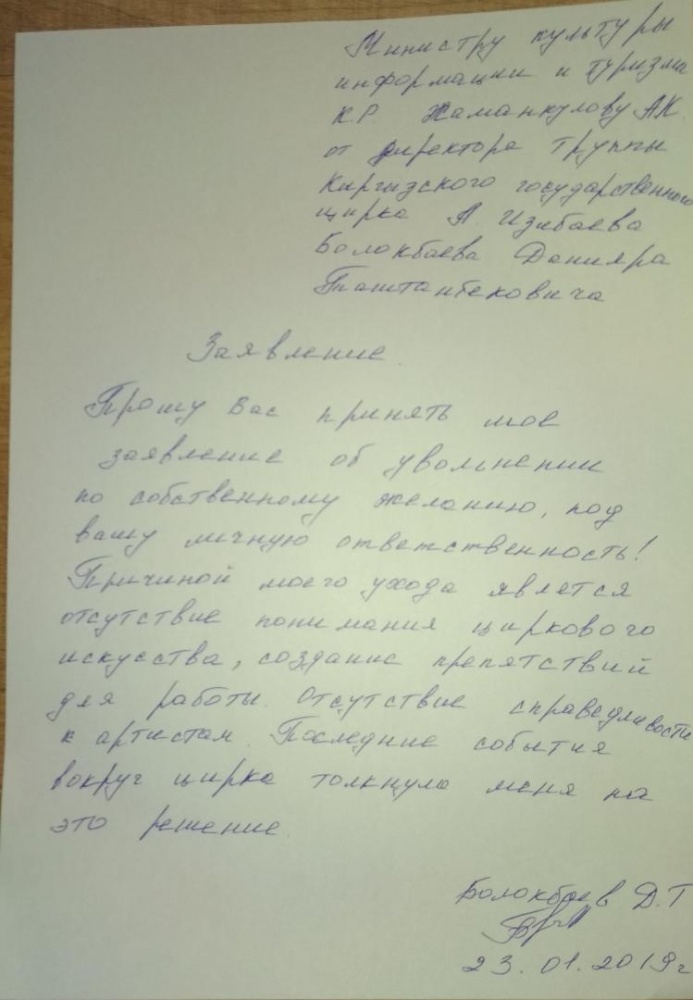 Министру культуры
информации и туризма
КР. Жаманкулову А.К.
от директора труппы
Киргизского государственного
цирка А. Изибаева
Болокбаева Данияра
Таштанбековича
Заявление
Прошу Вас принять мое
заявление об увольнении
по собственному желанию, под
вашу личную ответственность!
Причиной моего ухода явлется
отсутствие понимания циркового
искусства, создание препятствий
для работы. Отсутствие справедливости
к артистам. Последние события
вокруг цирка толкнуло меня на
это решение.
Болокбаев Д.Т
23.01.2019г